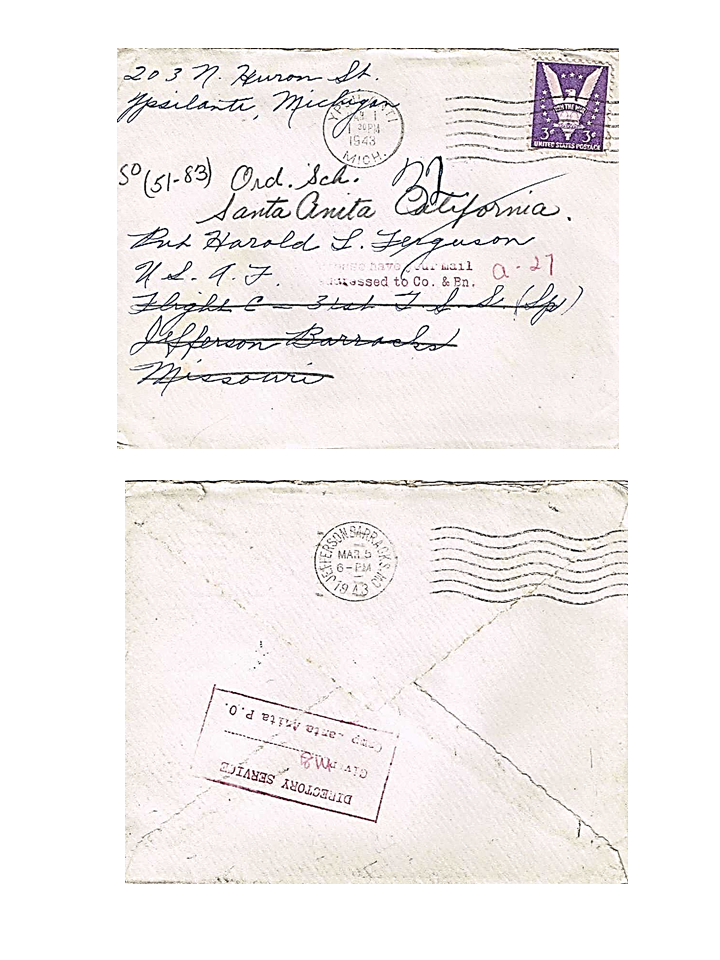 203 N. Huron St.
Ypsilante, Michigan
1943
MICH.
WIN THE WAR
3¢ 3¢
UNITED STATES POSTAGE
SO (51-83) Ord. Sch.
Santa Anita California.
Pvt Harold L. Ferguson
U.S.A.F.
have your mail
addressed to Co. & Bn.
a-27
Flight C - 31st T.S.S. (Sp)
Jefferson Barracks
Missouri
JEFFERSON BARRACKS, MO.
MAR 5
6-PM
1943
DIRECTORY SERVICE
Given
Camp Santa Anita P.O.